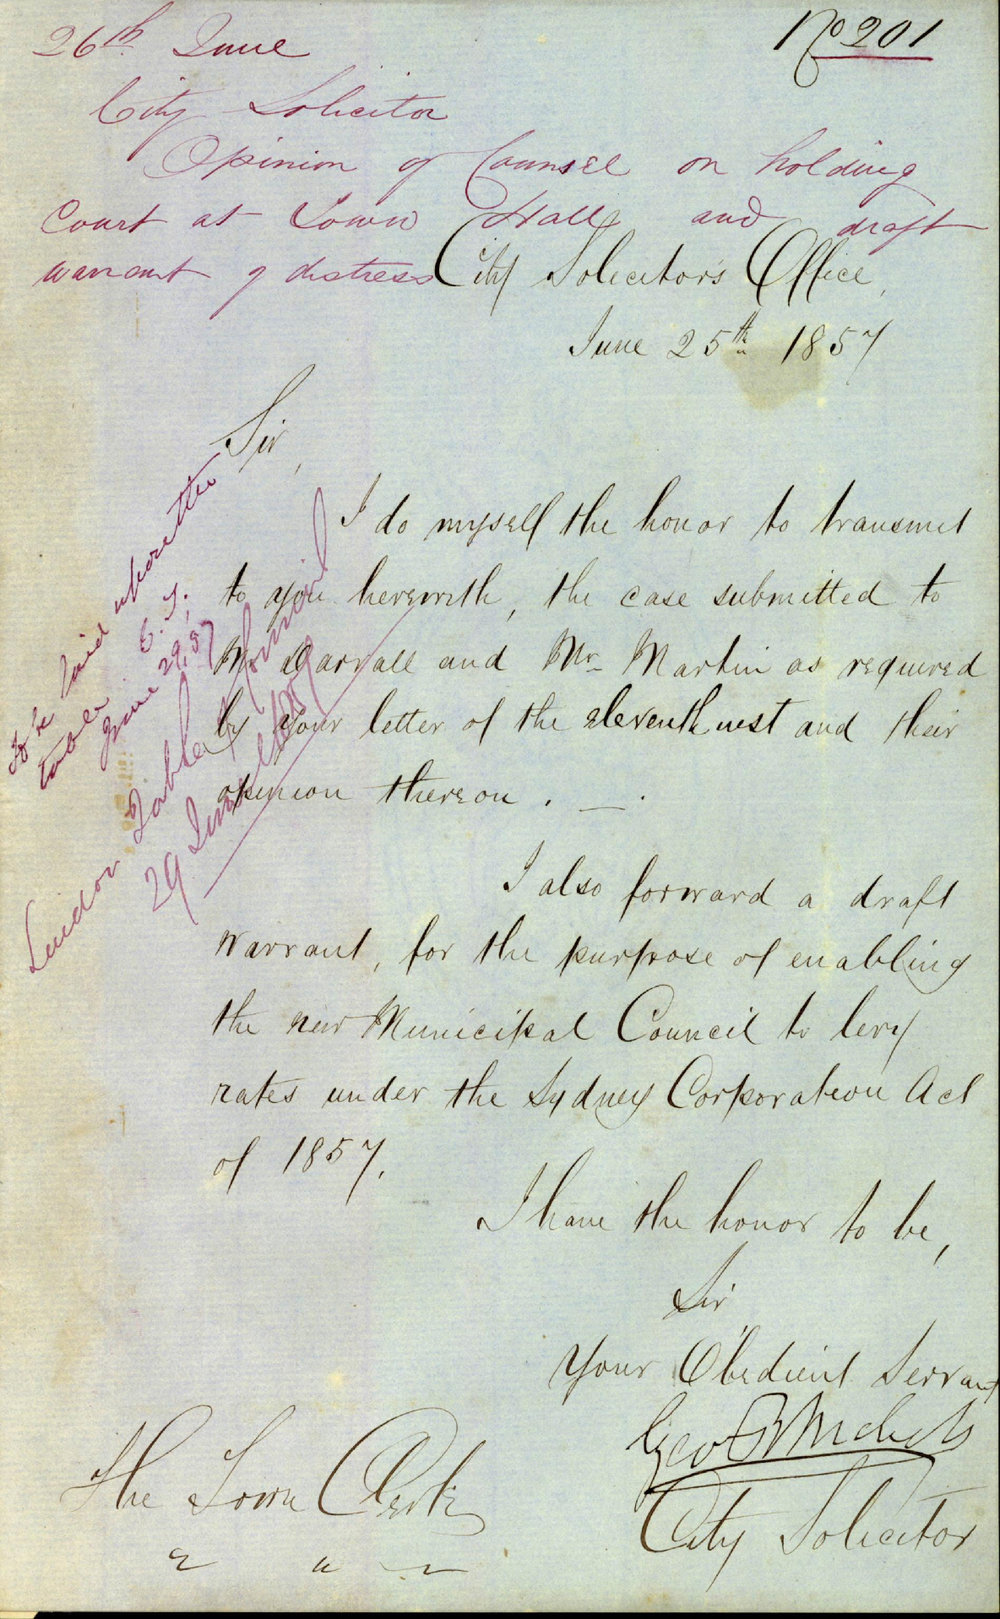 No 201
26th June
City Solicitor
Opinion of Counsel on holding
Court at Town Hall and draft
warrant of distress
City Solicitor's Office,
June 25th 1857
Sir,
I do myself the honor to transmit
to you herewith, the case submitted to
Mr Darvall and Mr Martin as required
by your letter of the eleventh inst and their
opinion thereon . — .
I also forward a draft
warrant, for the purpose of enabling
the new Municipal Council to levy
rates under the Sydney Corporation Act
of 1857.
I have the honor to be,
Sir
Your Obedient Servant
Geo R Nichols
City Solicitor
The Town Clerk
To be laid upon the
table
June 29, 57
Laid on Table of Council
29 June 1857